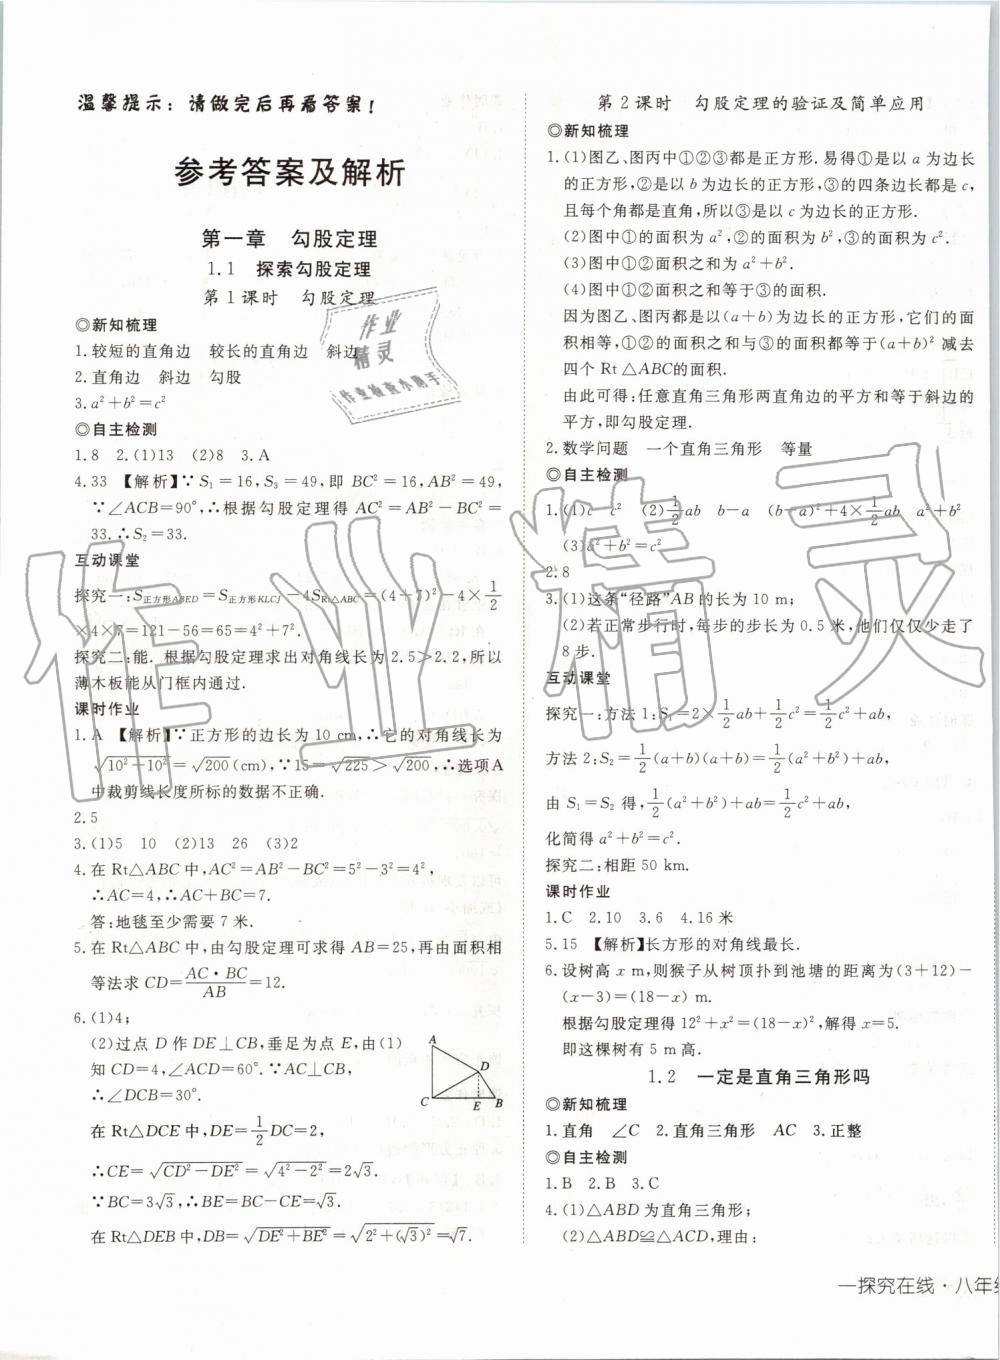 温馨提示：请做完后再看答案！
参考答案及解析
第一章　勾股定理
1.1　探索勾股定理
第1课时　勾股定理
◎新知梳理
1.较短的直角边　较长的直角边　斜边
2.直角边　斜边　勾股
3.a²+b²=c²
◎自主检测
1.8　2.(1)13　(2)8　3.A
4.33　【解析】∵S₁=16,S₃=49,即 BC²=16,AB²=49,
∵∠ACB=90°,∴根据勾股定理得 AC²=AB²-BC²=
33.∴S₂=33.
互动课堂
探究一:S正方形ABED=S正方形KLCJ-4SRt△ABC=(4+7)²-4×1/2
×4×7=121-56=65=4²+7².
探究二:能.根据勾股定理求出对角线长为 2.5>2.2,所以
薄木板能从门框内通过.
课时作业
1.A　【解析】∵正方形的边长为 10 cm,∴它的对角线长为
√(10²+10²)=√200(cm),∵15=√225>√200,∴选项A
中裁剪线长度所标的数据不正确.
2.5
3.(1)5　10　(2)13　26　(3)2
4.在 Rt△ABC 中,AC²=AB²-BC²=5²-3²=4²,
∴AC=4,∴AC+BC=7.
答:地毯至少需要 7 米.
5.在 Rt△ABC 中,由勾股定理可求得 AB=25,再由面积相
等法求 CD=AC·BC/AB=12.
6.(1)4;
(2)过点 D 作 DE⊥CB,垂足为点 E,由(1)
知 CD=4,∠ACD=60°,
∴∠DCB=30°.
在 Rt△DCE 中,DE=1/2DC=2,
∴CE=√(CD²-DE²)=√(4²-2²)=2√3.
∵BC=3√3,∴BE=BC-CE=√3.
在 Rt△DEB 中,DB=√(DE²+BE²)=√(2²+(√3)²)=√7.
A
D
C
E
B
第2课时　勾股定理的验证及简单应用
◎新知梳理
1.(1)图乙、图丙中①②③都是正方形.易得①是以 a 为边长
的正方形,②是以 b 为边长的正方形,③的四条边长都是 c,
且每个角都是直角,所以③是以 c 为边长的正方形.
(2)图中①的面积为 a²,②的面积为 b²,③的面积为 c².
(3)图中①②面积之和为 a²+b².
(4)图中①②面积之和等于③的面积.
因为图乙、图丙都是以(a+b)为边长的正方形,它们的面
积相等,①②的面积之和与③的面积都等于(a+b)²减去
四个 Rt△ABC的面积.
由此可得:任意直角三角形两直角边的平方和等于斜边的
平方,即勾股定理.
2.数学问题　一个直角三角形　等量
◎自主检测
1.(1)c　c²　(2)1/2ab　b-a　(b-a)²+4×1/2ab　a²+b²
(3)a²+b²=c²
2.8
3.(1)这条“径路”AB的长为 10 m;
(2)若正常步行时,每步的步长为 0.5 米,他们仅仅少走了
8步.
互动课堂
探究一:方法 1:S₁=2×1/2ab+1/2c²=1/2c²+ab,
方法 2:S₂=1/2(a+b)(a+b)=1/2(a²+b²)+ab,
由 S₁=S₂ 得,1/2(a²+b²)+ab=1/2c²+ab,
化简得 a²+b²=c².
探究二:相距 50 km.
课时作业
1.C　2.10　3.6　4.16米
5.15　【解析】长方形的对角线最长.
6.设树高 x m,则猴子从树顶扑到池塘的距离为(3+12)-
(x-3)=(18-x) m.
根据勾股定理得 12²+x²=(18-x)²,解得 x=5.
即这棵树有 5 m高.
1.2　一定是直角三角形吗
◎新知梳理
1.直角　∠C　2.直角三角形　AC　3.正整
◎自主检测
1.B　2.B　3.C
4.(1)△ABD为直角三角形;
(2)△ABD≌△ACD,理由:
—探究在线·八年
作业
精灵
作业检查小助手
作业精灵